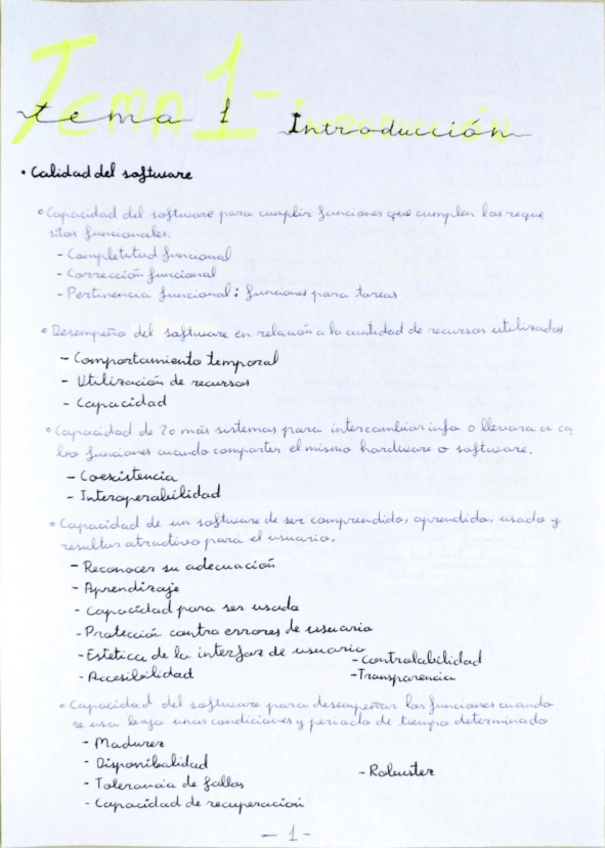 TEMA 1 - INTRODUCCIÓN
tema 1 Introducción
• Calidad del software
° Capacidad del software para cumplir funciones que cumplen los requi
sitos funcionales.
- Completitud funcional
- Corrección funcional
- Pertinencia funcional: funciones para tareas
° Desempeño del software en relación a la cantidad de recursos utilizados
- Comportamiento temporal
- Utilización de recursos
- Capacidad
° Capacidad de 2 o más sistemas para intercambiar info o llevar a ca
bo funciones cuando comparten el mismo hardware o software.
- Coexistencia
- Interoperabilidad
° Capacidad de un software de ser comprendido, aprendido, usado y
resultar atractivo para el usuario.
- Reconocer su adecuación
- Aprendizaje
- Capacidad para ser usado
- Protección contra errores de usuario
- Estética de la interfaz de usuario
- Controlabilidad
- Accesibilidad
- Transparencia
° Capacidad del software para desempeñar las funciones cuando
se usa bajo unas condiciones y periodo de tiempo determinado
- Madurez
- Disponibalidad
- Robustez
- Tolerancia de fallos
- Capacidad de recuperación
- 1 -